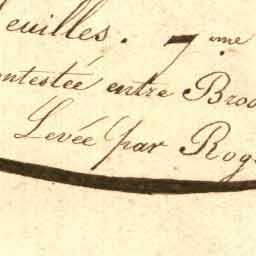 feuilles. 7eme
ontestée entre Broo
Levée par Rog